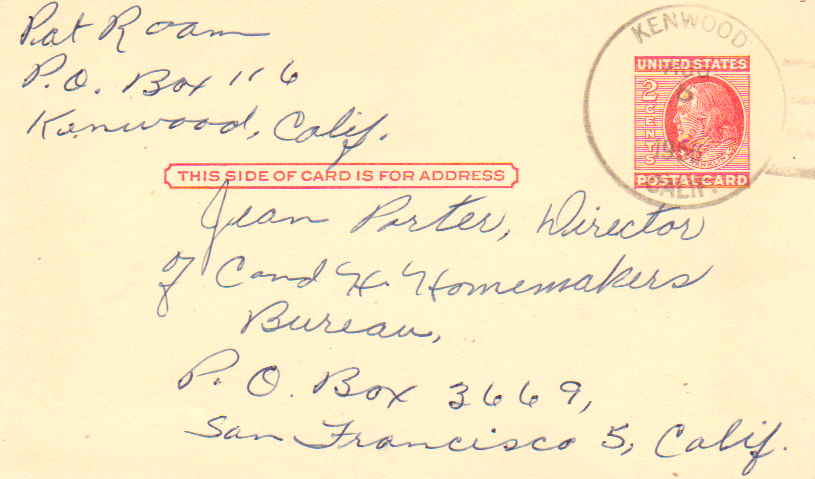 Pat Roam
P.O. Box 116
Kenwood, Calif.
KENWOOD
AUG
1955
CALIF.
UNITED STATES
2 CENTS
POSTAL CARD
THIS SIDE OF CARD IS FOR ADDRESS
Jean Porter, Director
of C and H. Homemakers
Bureau,
P. O. Box 3669,
San Francisco 5, Calif.